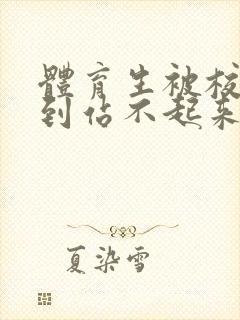 體育生被校
到佔不起来
夏染雪